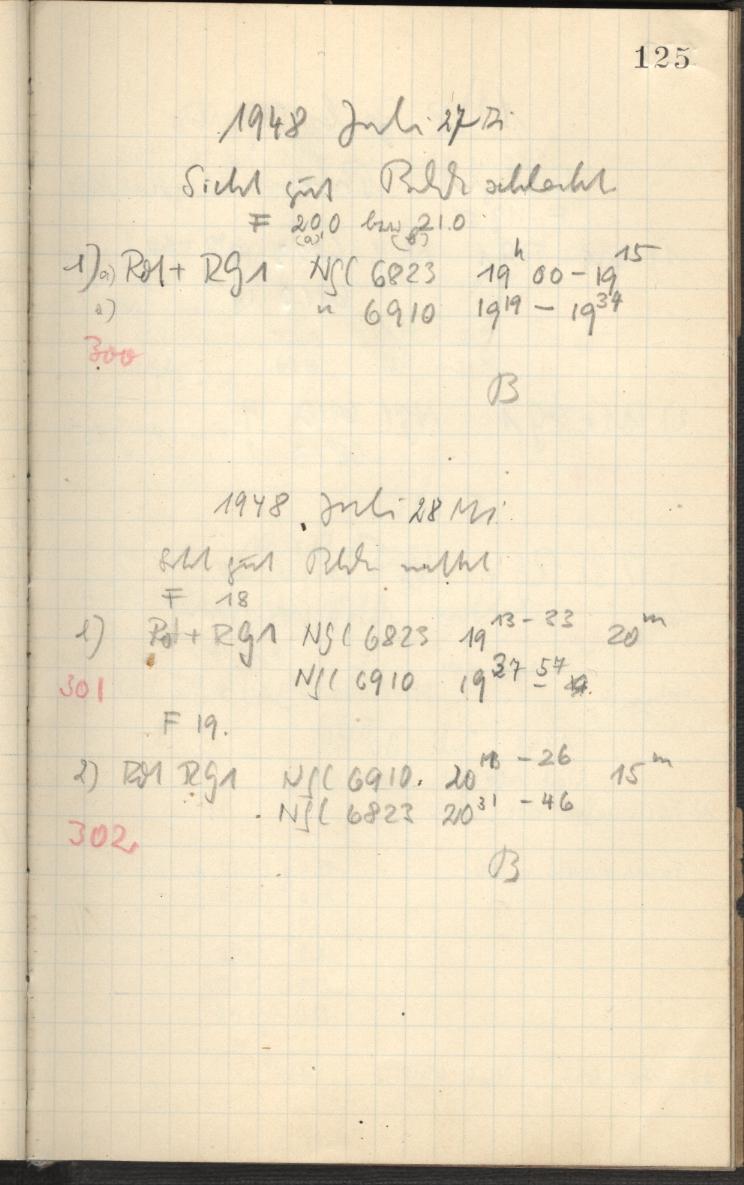 125
1948 Juli 27 Di
Sicht gut Bilder schlecht
F 20,0 bzw 21.0
(a) (b)
1) a) Rot + RG1 NGC 6823 19h 00 - 19 15
b) " 6910 19 19 - 19 34
300
B
1948 Juli 28 Mi
Sicht gut Bilder
F 18
1) Rot + RG1 NGC 6823 19 13 - 33 20m
301 NGC 6910 19 37 - 57
F 19.
2) Rot RG1 NGC 6910. 20 - 26 15m
NGC 6823 20 31 - 46
302
B